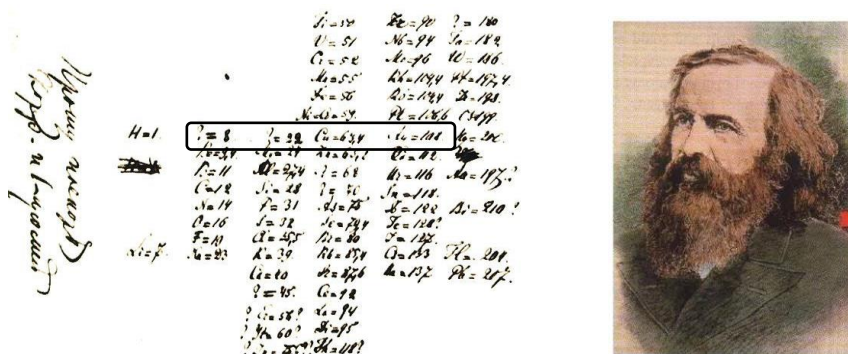 Ti=50 Zr=90 ?=180
V=51 Nb=94 Ta=182
Cr=52 Mo=96 W=186
Mn=55 Rh=104,4 Pt=197,4
Fe=56 Ru=104,4 Ir=198
Ni=Co=59 Pl=106,6 Os=199
H=1 ?=8 ?=22 Cu=63,4 Ag=108 Hg=200
Be=9,4 Mg=24 Zn=65,2 Cd=112
B=11 Al=27,4 ?=68 Ur=116 Au=197?
C=12 Si=28 ?=70 Sn=118
N=14 P=31 As=75 Sb=122 Bi=210?
O=16 S=32 Se=79,4 Te=128?
F=19 Cl=35,5 Br=80 J=127
Li=7 Na=23 K=39 Rb=85,4 Cs=133 Tl=204
Ca=40 Sr=87,6 Ba=137 Pb=207
?=45 Ce=92
?Er=56? La=94
?Yt=60? Di=95
?In=75,6? Th=118?